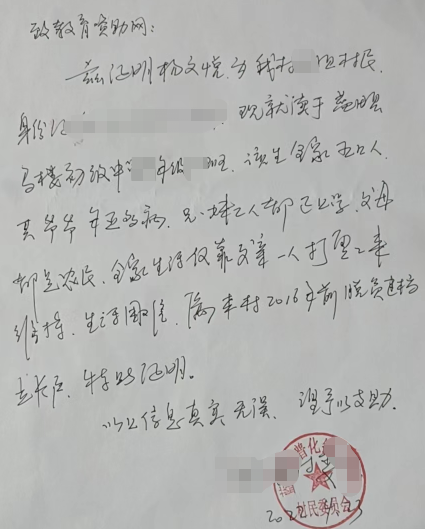 致教育资助网：
兹证明杨文悦，为我村 村民，
身份证 现就读于 县
马楼初级中 年级 班，该生全家五口人，
其爷爷年迈多病，兄妹二人都正上学，父母
都是农民，全家生活仅靠父亲一人打零工来
维持，生活困难，属来村2016年前脱贫建档
立卡户，特此证明。
以上信息真实无误，望予以支助。
普化
村民委员会